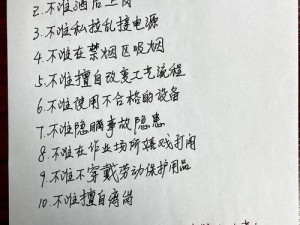 2. 不准酒后上岗
3. 不准私拉乱接电源
4. 不准在禁烟区吸烟
5. 不准擅自改变工艺流程
6. 不准使用不合格的设备
7. 不准隐瞒事故隐患
8. 不准在作业场所嬉戏打闹
9. 不准不穿戴劳动保护用品
10. 不准擅自离岗